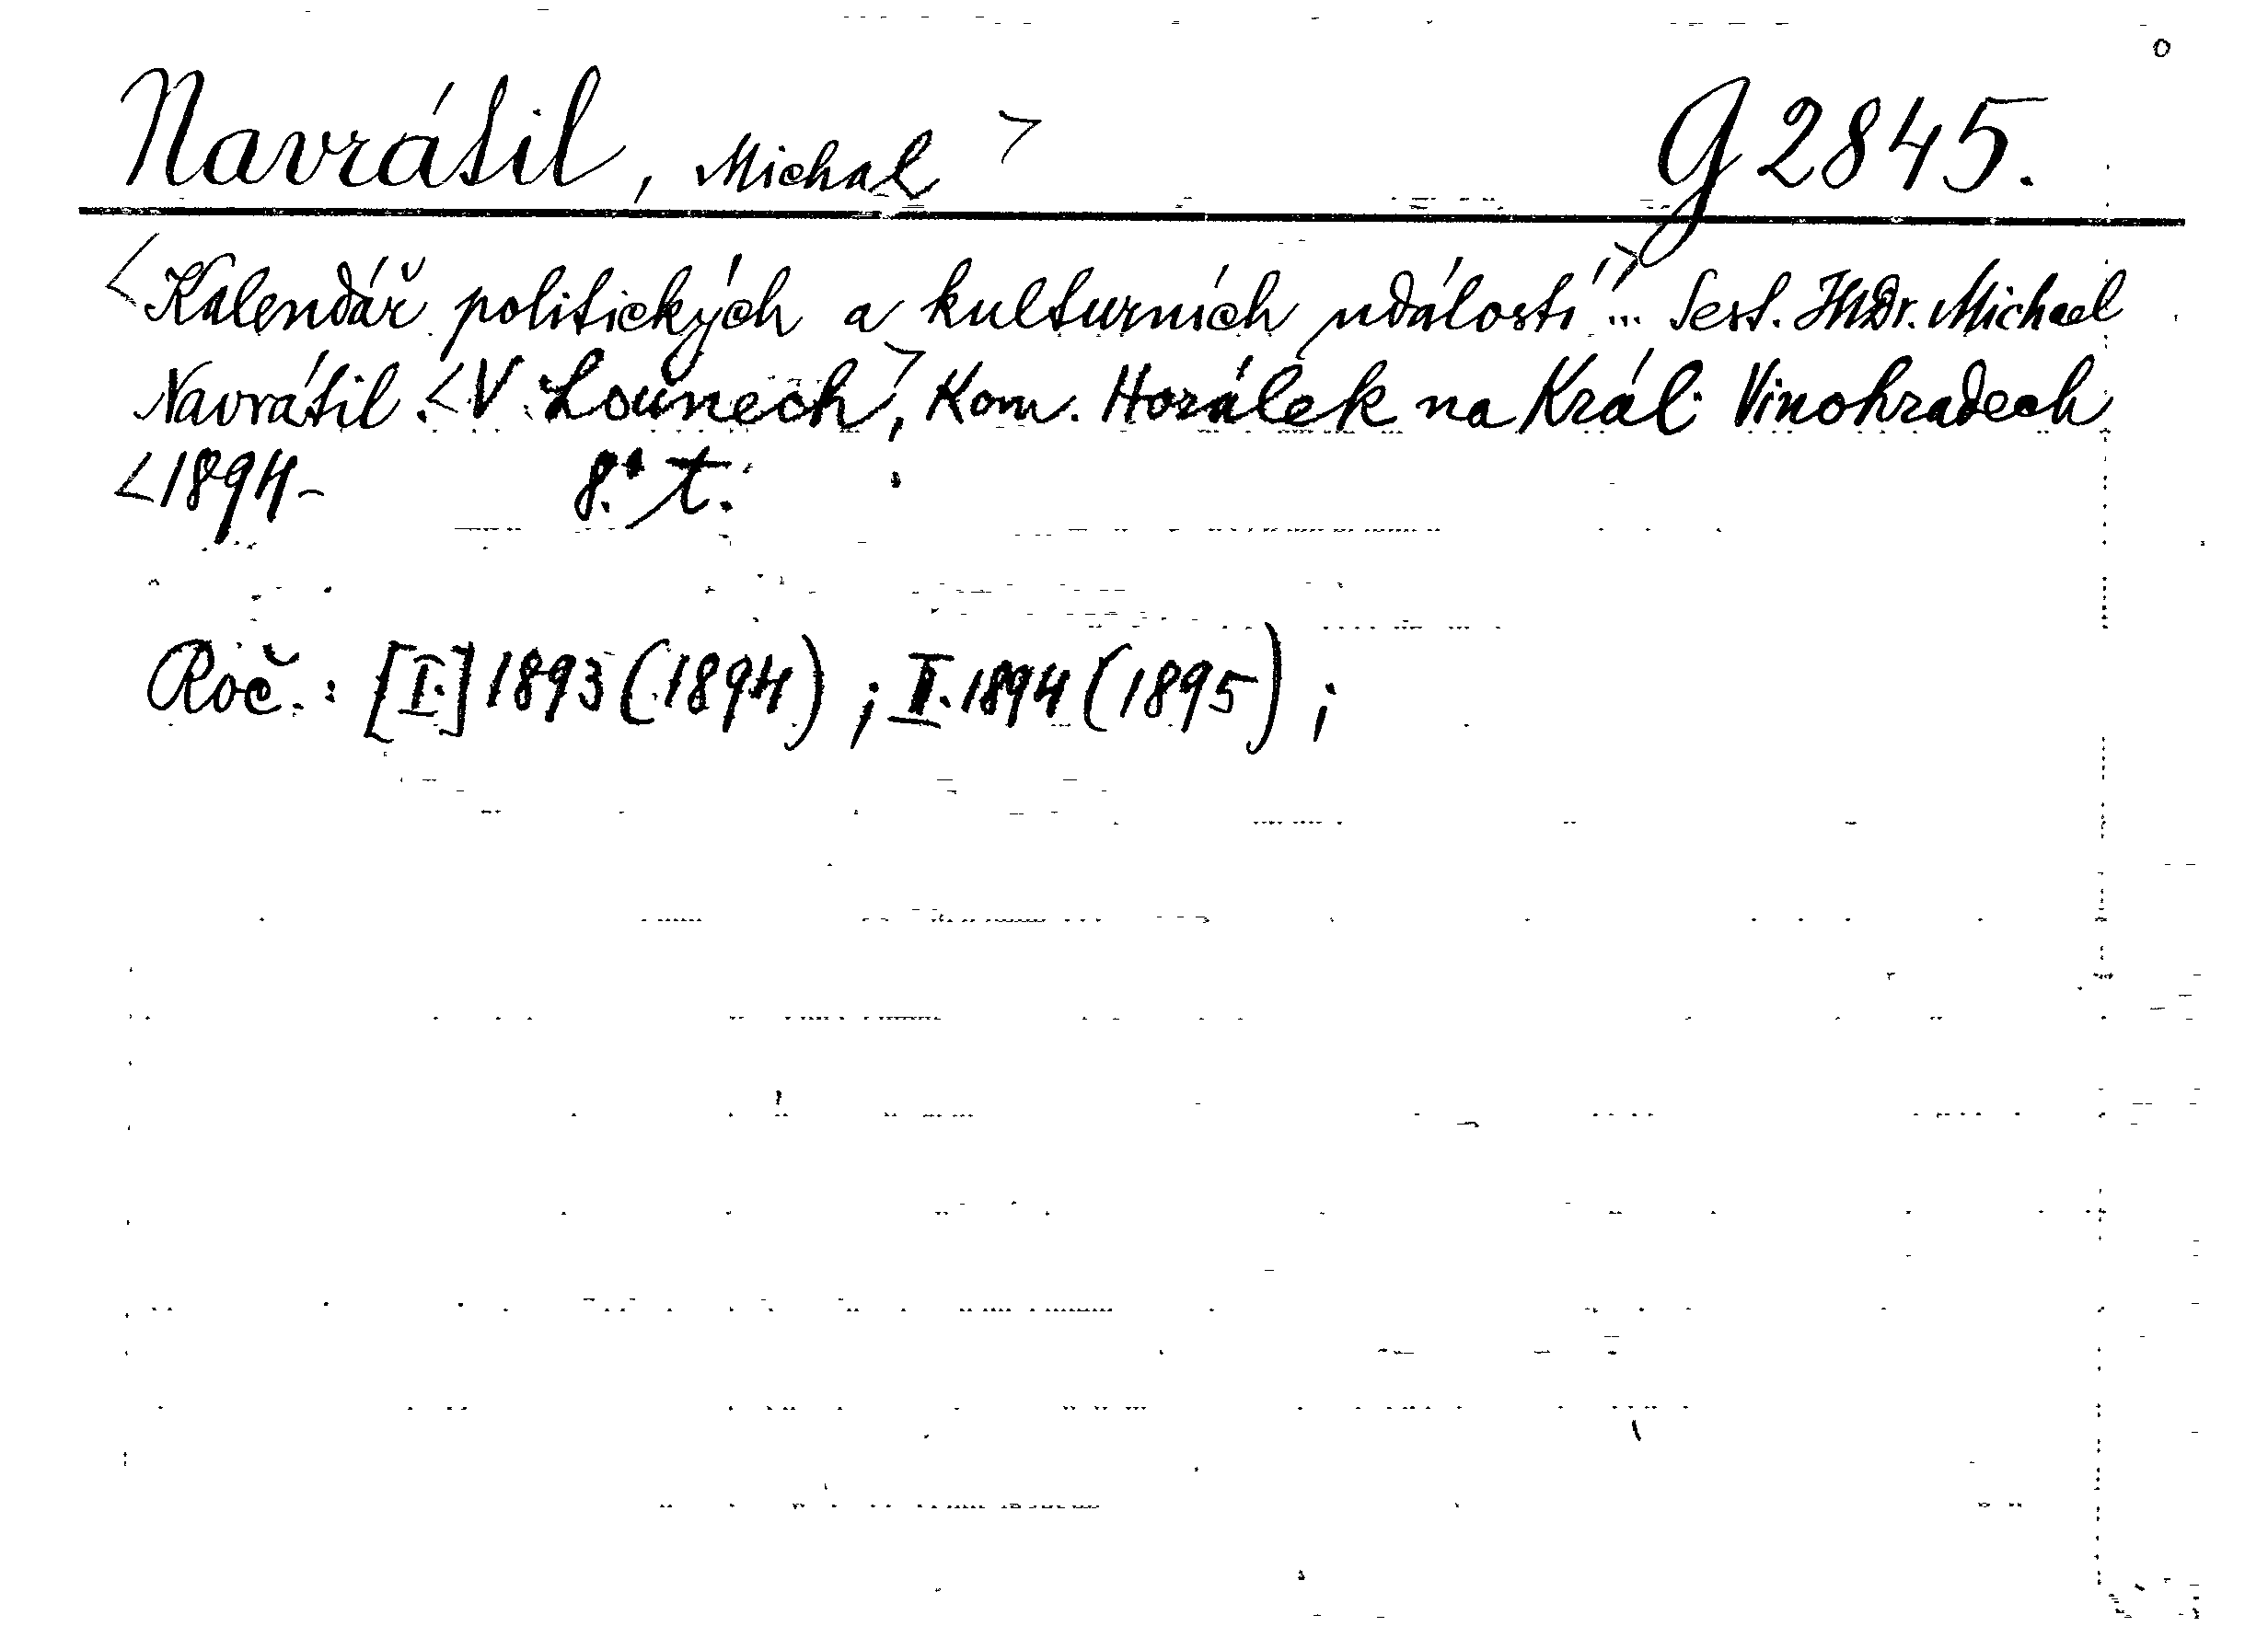 Navrátil, Michal > G 2845.
<Kalendář politických a kulturních událostí"> ... Sest. JUDr. Michael
Navrátil. <V Lounech>, Kom. Horálek na Král. Vinohradech
<1894- 8.° t.
Roč.: [I.] 1893 (1894); II. 1894 (1895);